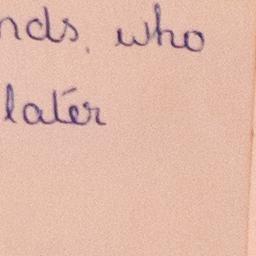 nds, who
later